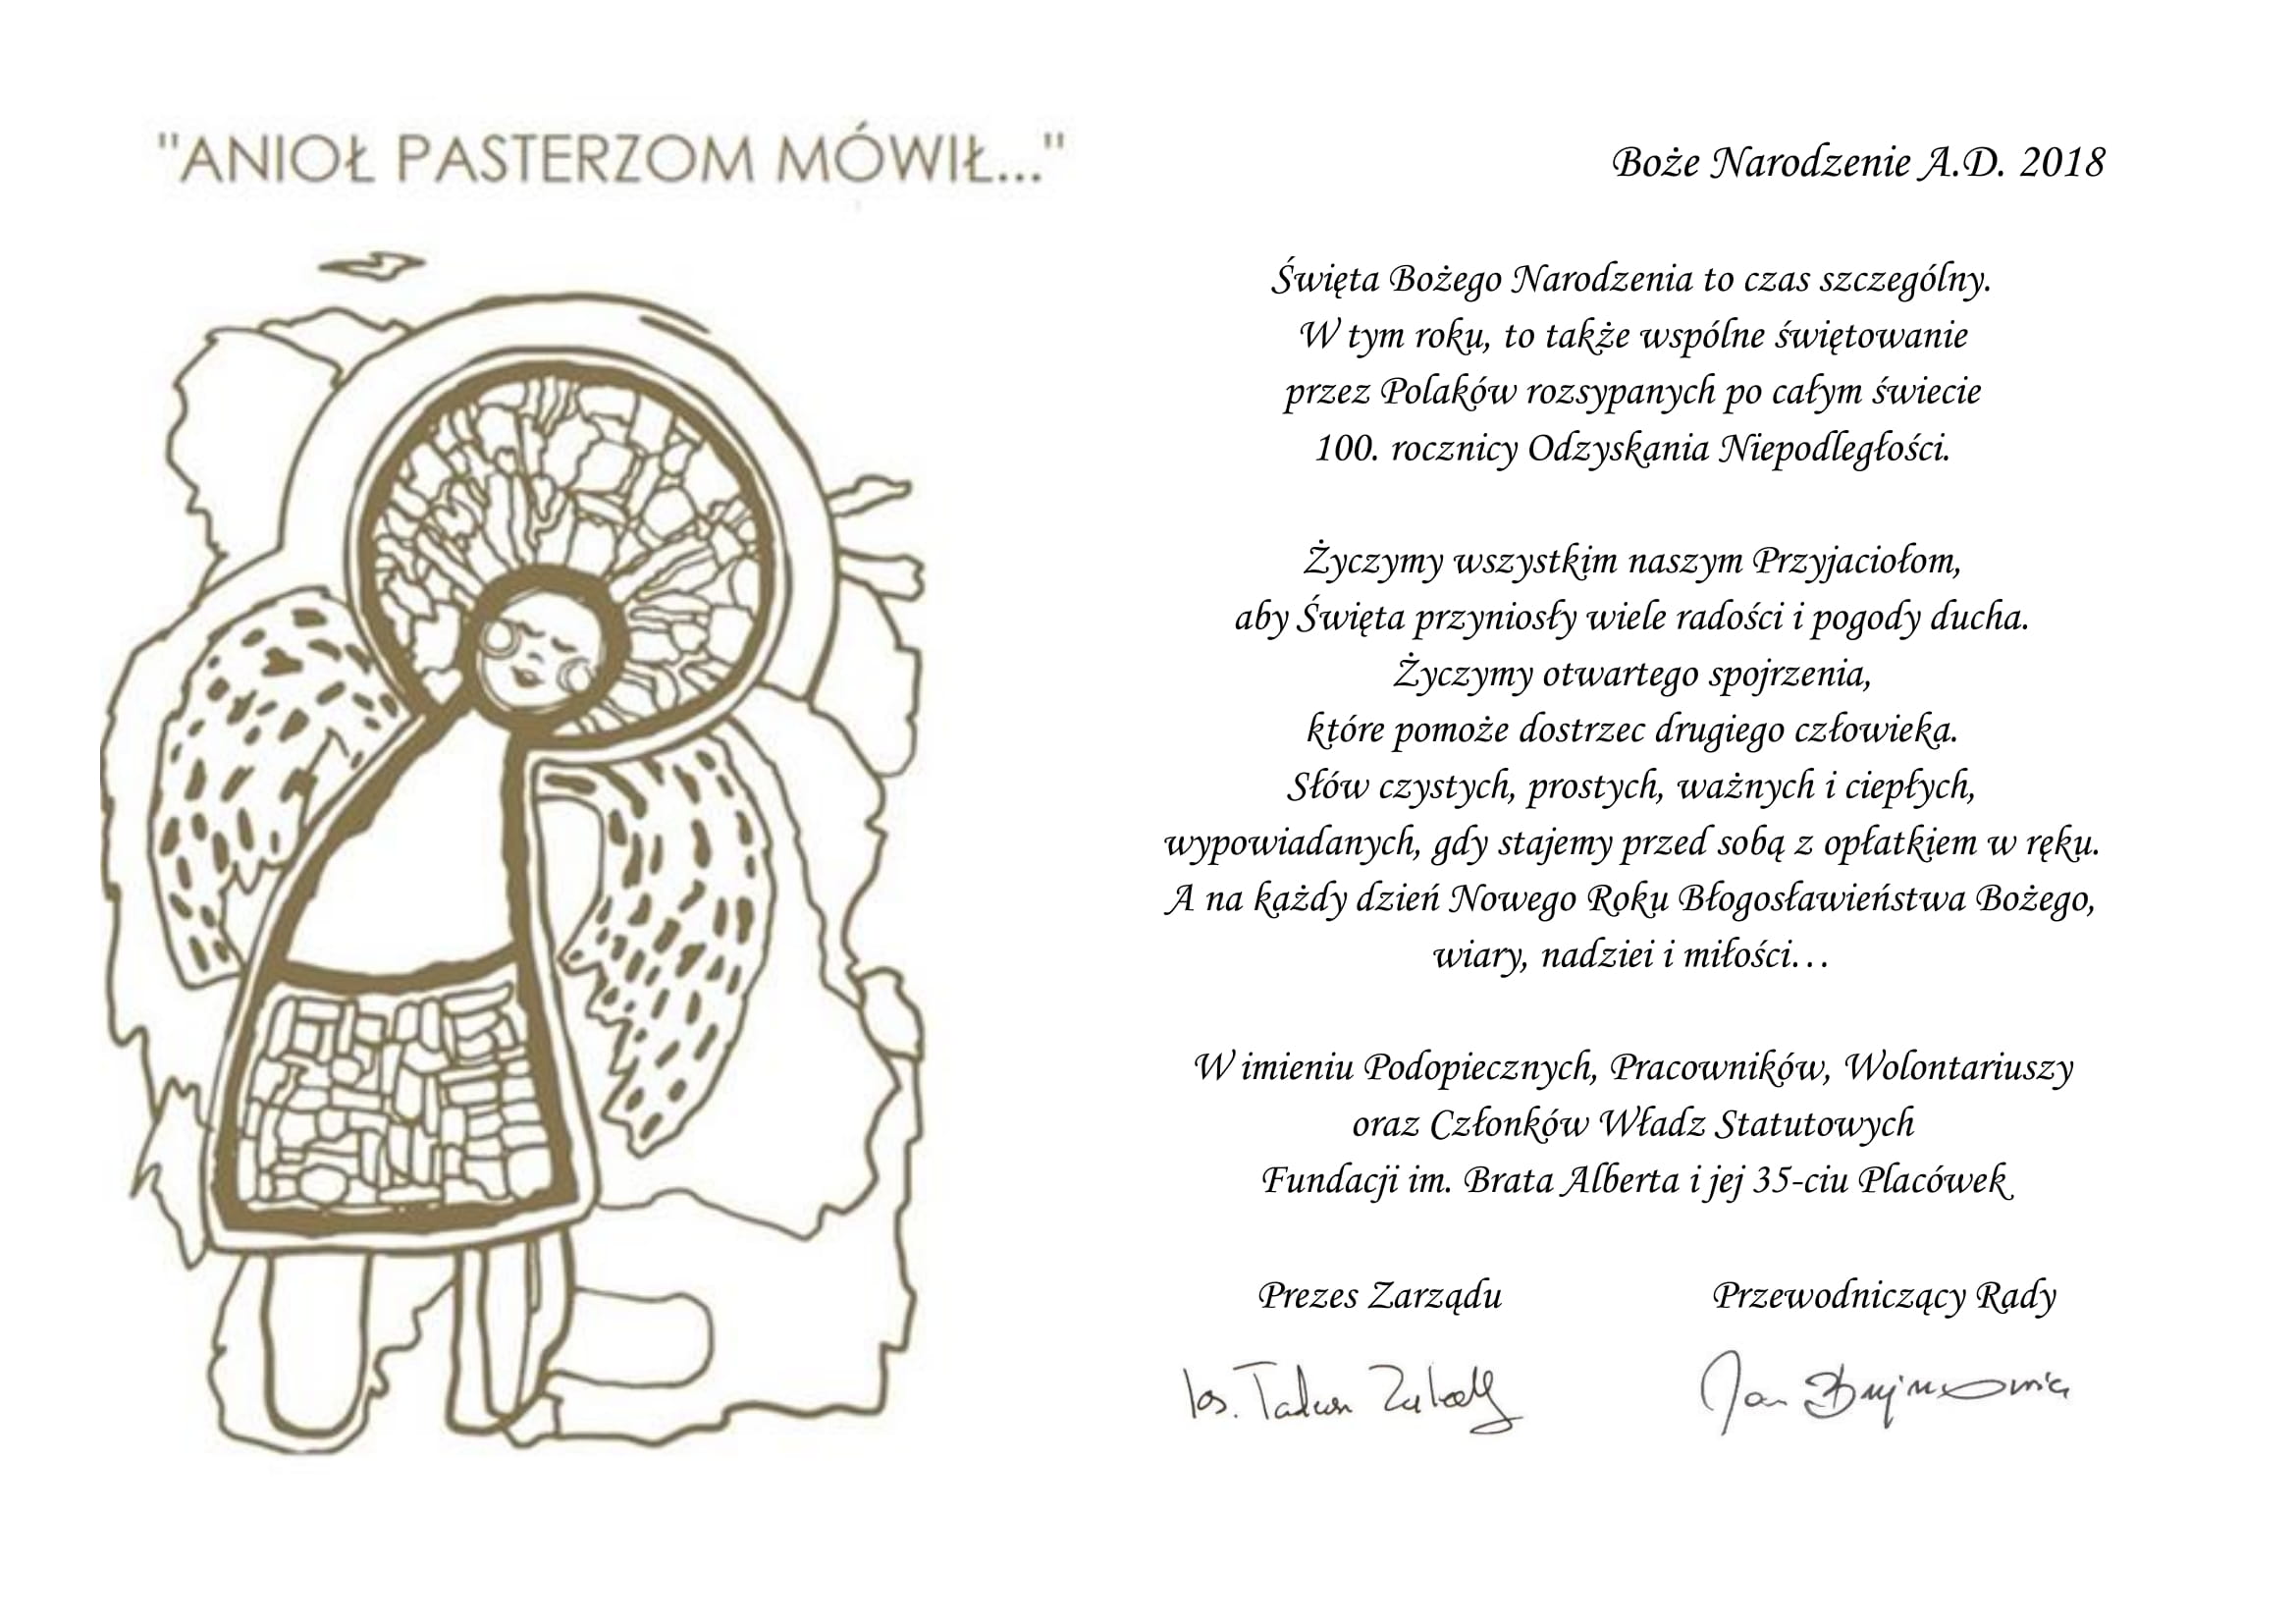 "ANIOŁ PASTERZOM MÓWIŁ..."
Boże Narodzenie A.D. 2018
Święta Bożego Narodzenia to czas szczególny.
W tym roku, to także wspólne świętowanie
przez Polaków rozsypanych po całym świecie
100. rocznicy Odzyskania Niepodległości.
Życzymy wszystkim naszym Przyjaciołom,
aby Święta przyniosły wiele radości i pogody ducha.
Życzymy otwartego spojrzenia,
które pomoże dostrzec drugiego człowieka.
Słów czystych, prostych, ważnych i ciepłych,
wypowiadanych, gdy stajemy przed sobą z opłatkiem w ręku.
A na każdy dzień Nowego Roku Błogosławieństwa Bożego,
wiary, nadziei i miłości…
W imieniu Podopiecznych, Pracowników, Wolontariuszy
oraz Członków Władz Statutowych
Fundacji im. Brata Alberta i jej 35-ciu Placówek
Prezes Zarządu
Przewodniczący Rady
ks. Tadeusz
Jan